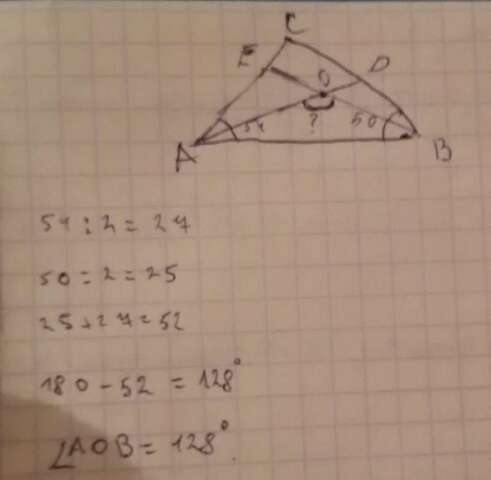 C
E
D
O
54
?
50
A
B
54 : 2 = 27
50 : 2 = 25
25 + 27 = 52
180 - 52 = 128°
∠AOB = 128°.